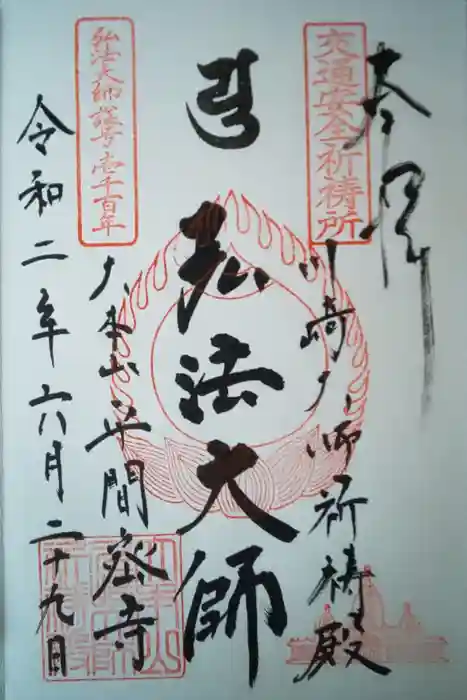 奉拝
交通安全祈祷所
川崎大師祈祷殿
弘法大師
弘法大師諡号壱千百年
大本山平間密寺
令和二年六月二十九日